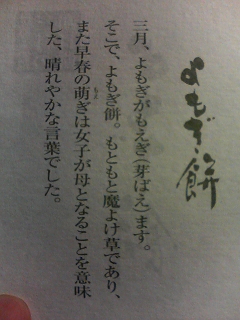 よもぎ餅
三月、よもぎがもえぎ(芽ばえ)ます。
そこで、よもぎ餅。もともと魔よけ草であり、
また早春の萌ぎは女子が母となることを意味
した、晴れやかな言葉でした。